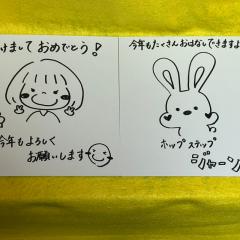 けまして おめでとう!
今年もよろしく
お願いします
今年もたくさんおはなしできますよ
ホップ ステップ
ジャーン